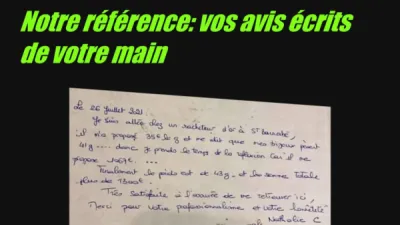 Notre référence: vos avis écrits
de votre main
Le 26 Juillet 2021
Je suis allée chez un racheteur d'or à St
il m'a proposé 35€ le g et me dit que mes bijoux pèsent
41 g .... donc je prends le temps de la réflexion car il me
propose
Finalement le poids est de 43 g. et les somme totale
plus de
Très satisfaite à l'issue de me retrouver ici,
Merci pour votre professionnalisme et votre honnêteté
Nathalie C